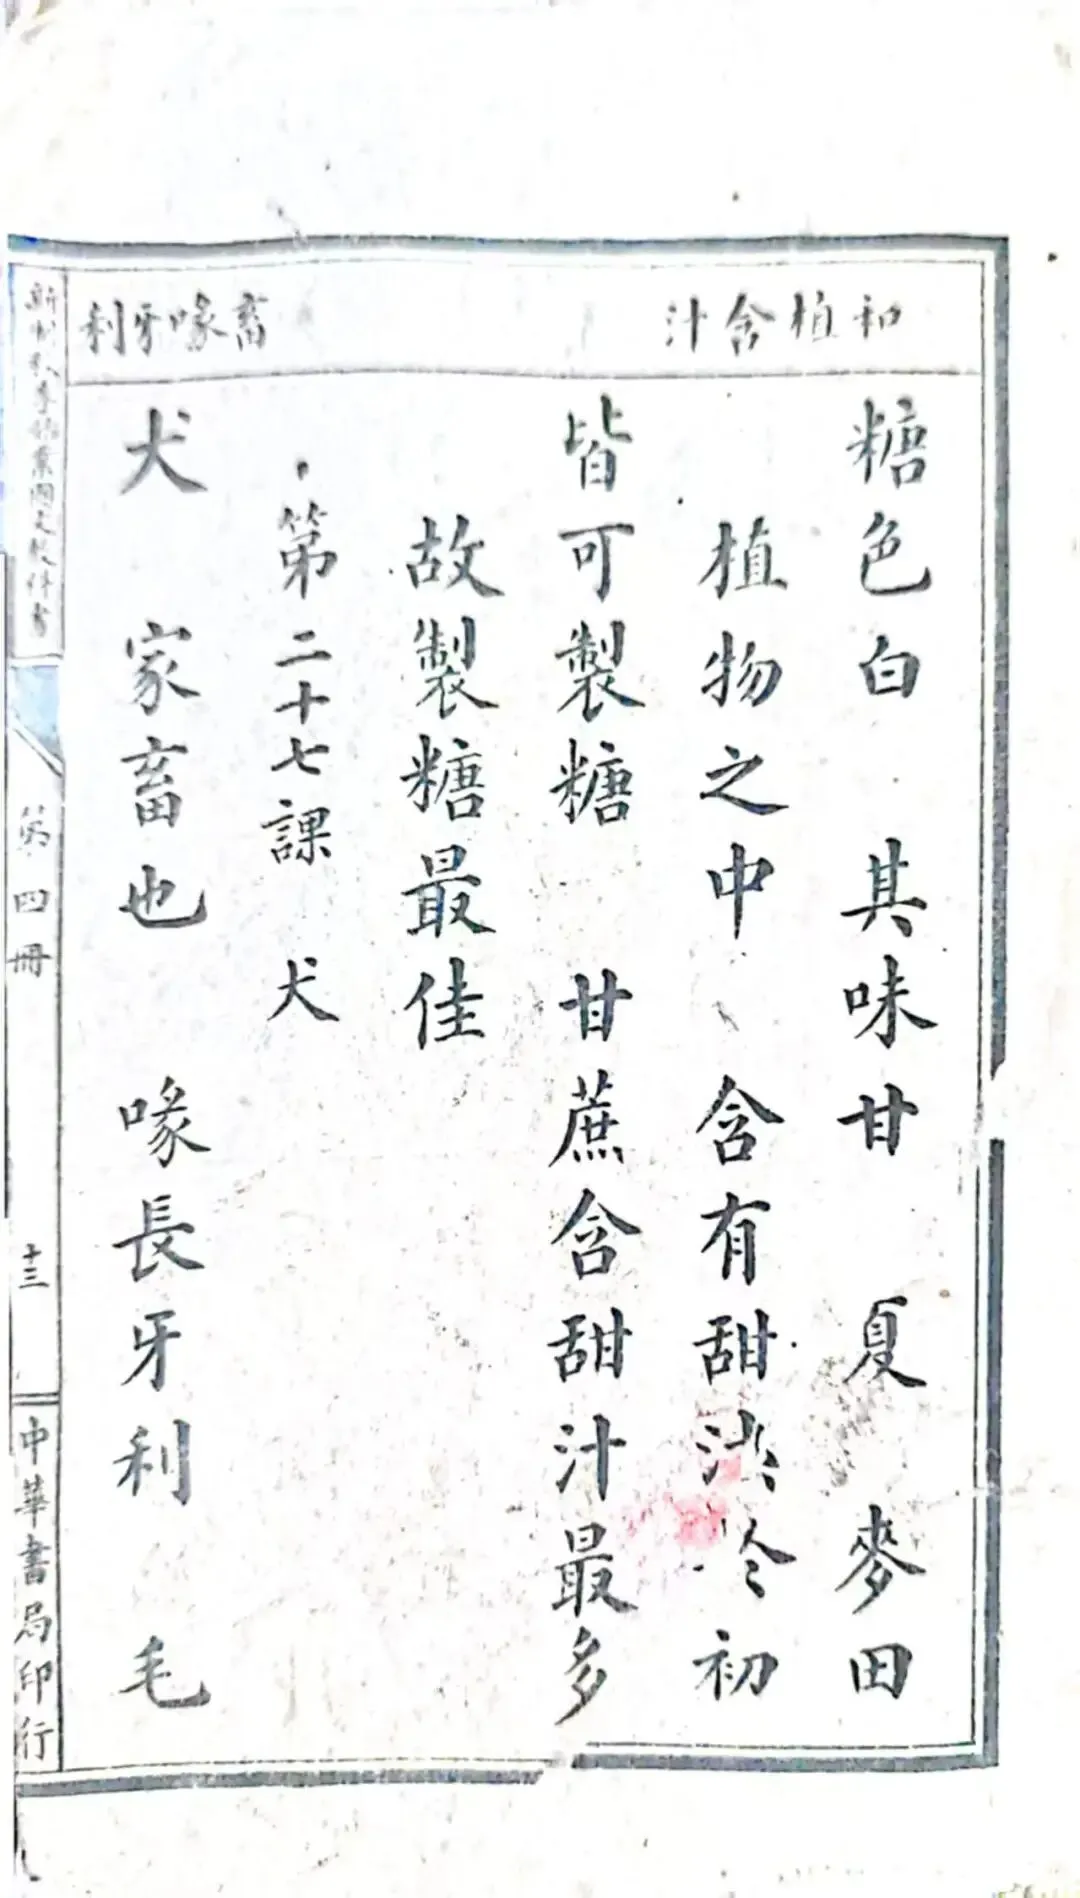 和植含汁
糖色白 其味甘 夏 麥田
植物之中 含有甜 初
皆可製糖 甘蔗含甜汁最多
故製糖最佳
第二十七課 犬
畜喙牙利
犬 家畜也 喙長牙利 毛
新制秋季始業國文教科書
第四冊
十三
中華書局印行